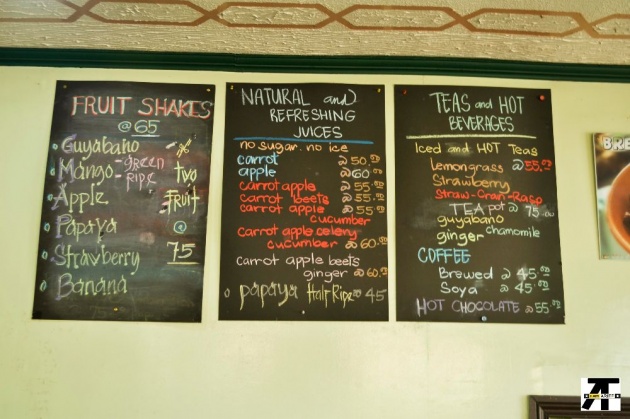 FRUIT SHAKES
@ 65
Guyabano if
Mango - green two
ripe
Apple Fruit
Papaya @
Strawberry 75
Banana
NATURAL and
REFRESHING
JUICES
no sugar. no ice
carrot @ 50.00
apple @ 60.00
carrot apple @ 55.00
carrot beets @ 55.00
carrot apple @ 55.00
cucumber
carrot apple celery
cucumber @ 60.00
carrot apple beets
ginger @ 60.00
papaya Half Ripe @ 45
TEAS and HOT
BEVERAGES
Iced and HOT Teas
Lemongrass @ 55.00
Strawberry
Straw-Cran-Rasp
TEA pot @ 75.00
guyabano
ginger chamomile
COFFEE
Brewed @ 45.00
Soya @ 45.00
HOT CHOCOLATE @ 55.00